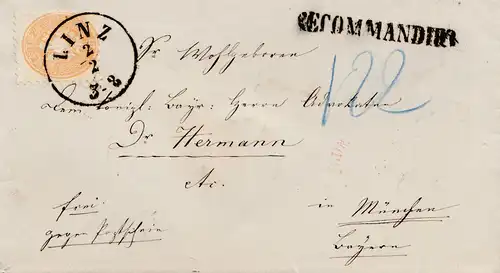 LINZ
2
2
3-8
RECOMMANDIRT
Sr Wohlgeboren
122
dem königl: Bayr: Herrn Advokaten
Dr Hermann
etc.
frei
gegen Postschein
in München
Bayern